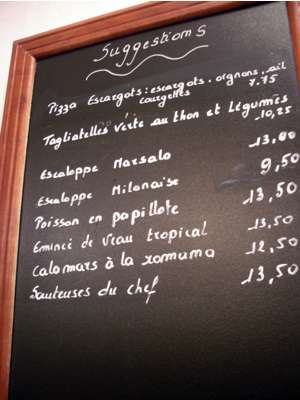 Suggestions
Pizza Escargots: escargots, oignons, ail
courgettes 7.75
Tagliatelles verte au thon et légumes
10,25
Escaloppe Marsalo 13,00
Escaloppe Milanaise 9,50
Poisson en papillote 13,50
Emincé de veau tropical 13,50
Calamars à la romana 12,50
Sauteuses du chef 13,50